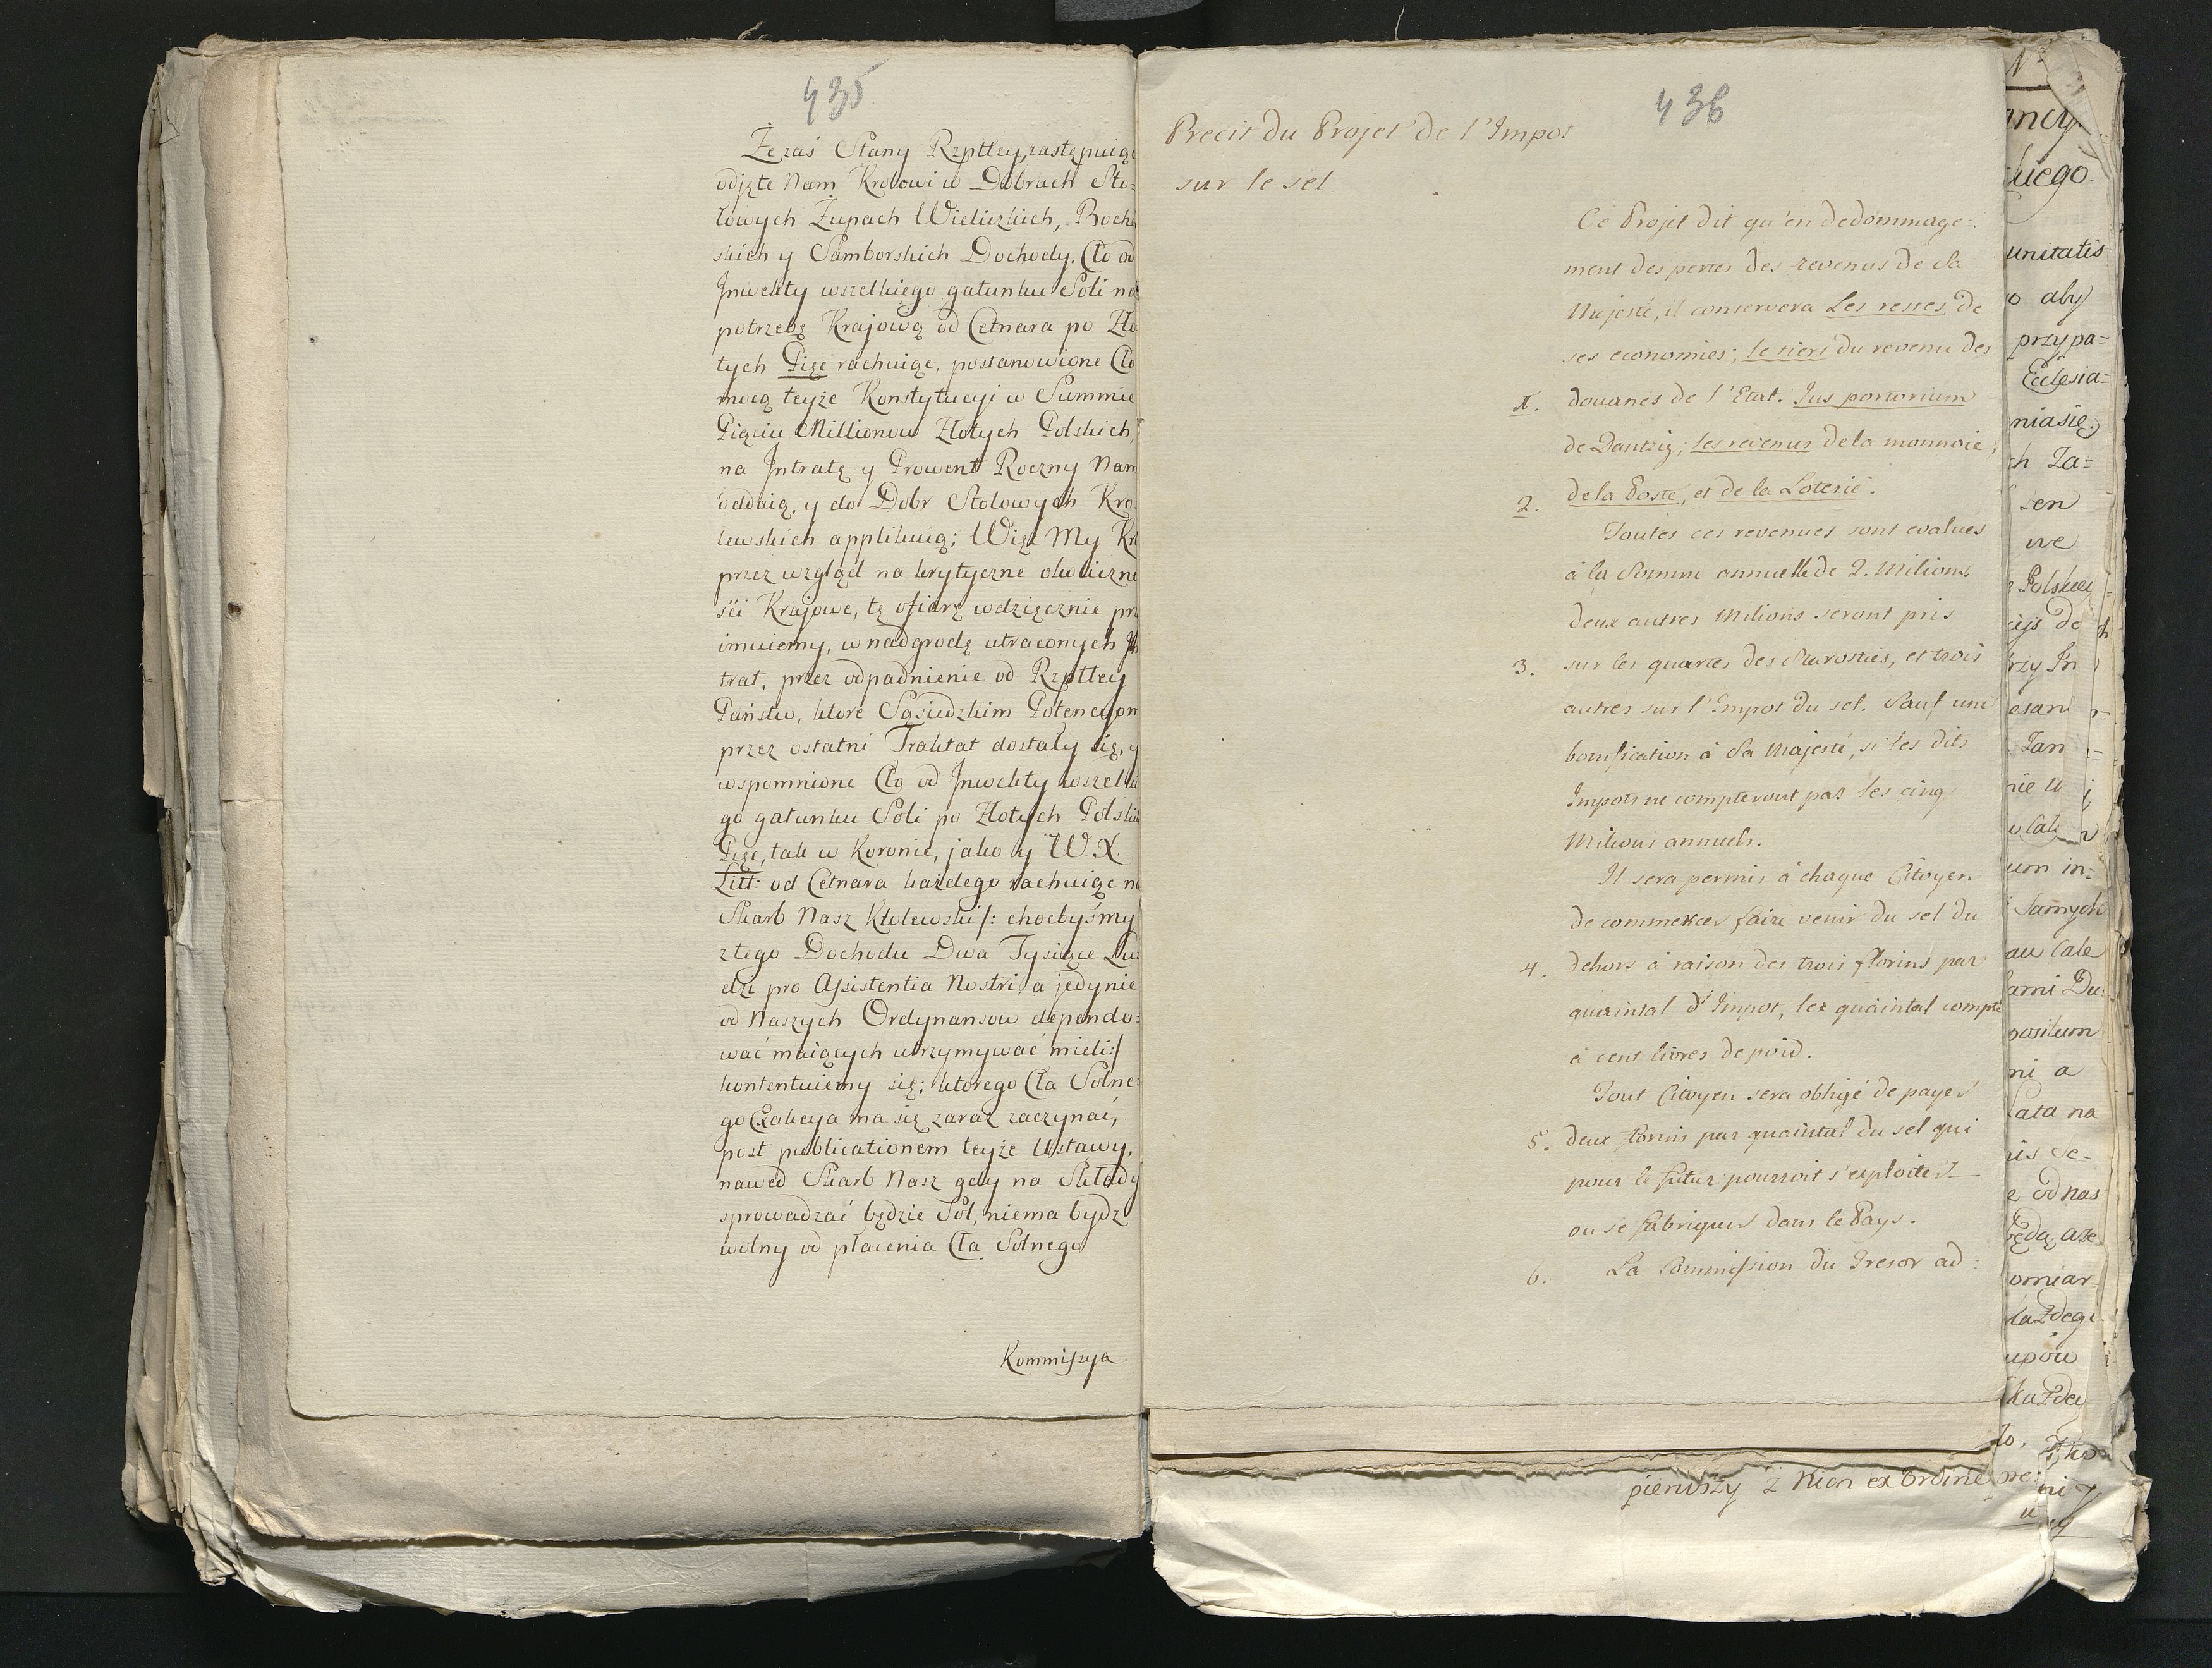 435
Że zaś Stany Rzptley, zastępuiąc
odjęte Nam Krolowi w Dobrach Sto=
łowych Żupach Wielizkich, Boch
skich y Samborskich Dochody. Cło od
Jnwekty wszelkiego gatunku Soli na
potrzebę Krajową od Cetnara po Zło
tych Pięc rachuiąc, postanowione Cło
mocą teyże Konstytucyi w Summie
Pięciu Millionow Złotych Polskich,
na Jntratę y Prowent Roczny Nam
oddaią, y do Dobr Stolowych Kro
lewskich applikuią; Więc My Kr
przez wzgląd na krytyczne okoliczno
sci Krajowe, tę ofiarę wdzięcznie prz
imuiemy, w nadgrodę utraconych Jn
trat, przez odpadnienie od Rzptley
Państw, ktore Sąsiedzkim Potencyom
przez ostatni Traktat dostały się, y
wspomnione Cło od Jnwekty wszelkie
go gatunku Soli po Złotych Polskich
Pięc, tak w Koronie, jako y W. X.
Litt: od Cetnara każdego rachuiąc na
Skarb Nasz Krolewski/: chocbyśmy
z tego Dochodu Dwa Tysiące Lu=
dzi pro Assistentia Nostri, a jedynie
od Naszych Ordynansow dependo=
wać maiących utrzymywać mieli:/
kontentuiemy się; ktorego Cła Solne=
go Exakcya ma się zaraz zaczynać,
post publicationem teyże Ustawy,
nawed Skarb Nasz gdy na Składy
sprowadzać będzie Sol, niema bydz
wolny od płacenia Cła Solnego
Kommissya
436
Precis du Projet de l'Impos
sur le sel
Ce Projet dit qu'en dedommage=
ment des pertes des revenus de Sa
Majesté, il conservera Les restes de
ses economies; le tiers du revenu des
1. douanes de l'Etat. Jus portorium
de Dantzig; les revenus de la monnoie;
2. de la Poste, et de la Loterie.
Toutes ces revenues sont evalués
à la Somme annuelle de 2. Milions.
deux autres Milions seront pris
3. sur les quartes des Starosties, et trois
autres sur l'Impos du sel. Sauf une
bonification à Sa Majesté, si les dits
Impots ne compteront pas les cinq
Milions annuels.
Il sera permis à chaque Citoyen
de commercer faire venir du sel du
4. dehors à raison des trois florins par
quaintal d'Impot, les quaintal compté
à cent livres de poid.
Tout Citoyen sera obligé de payer
5. deux florins par quaintal du sel qui
pour le futur pourroit s'exploiter
ou se fabriquer dans le Pays.
6. La Commission du Tresor ad=
ancy.
unitatis
o aby
przypa=
Ecclesia=
niasię
ch Za=
sen
we
Polskiey
Samych
Du
positum
ni a
Lata na
od nas
każdego
każdey
pierwszy z Nich ex ordine